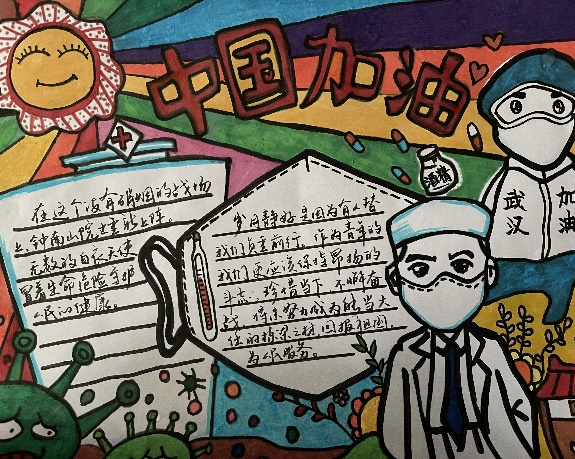 中国加油
在这个没有硝烟的战场
上钟南山院士上阵。
无数的白衣天使
冒着生命危险守护
人民的健康。
岁月静好是因为有人替
我们负重前行。作为青年的
我们更应该保持昂扬的
斗志，珍惜当下，不断奋
战，努力成为能当大
任的栋梁之材，回报祖国，
为人民服务。
酒精
武汉
加油